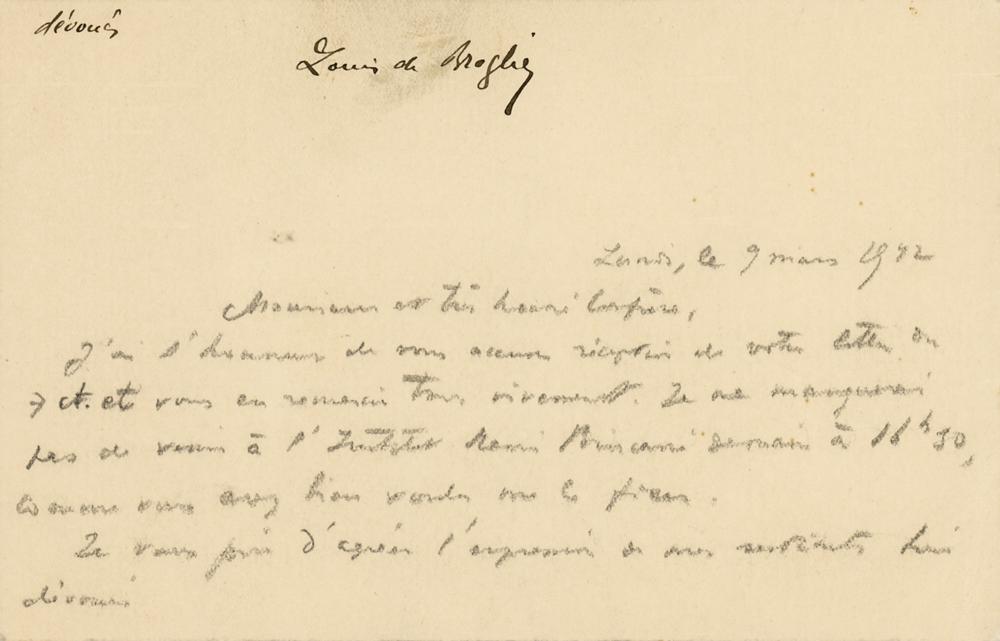 dévoués
Louis de Broglie
le 9 mars 1942
Monsieur et très honoré Confrère,
J'ai l'honneur de vous accuser réception de votre lettre du
7 ct. et vous en remercie très vivement. Je ne manquerai
pas de venir à l'Institut Henri Poincaré demain à 16h30,
comme vous avez bien voulu me le fixer.
Je vous prie d'agréer l'expression de mes sentiments bien
dévoués